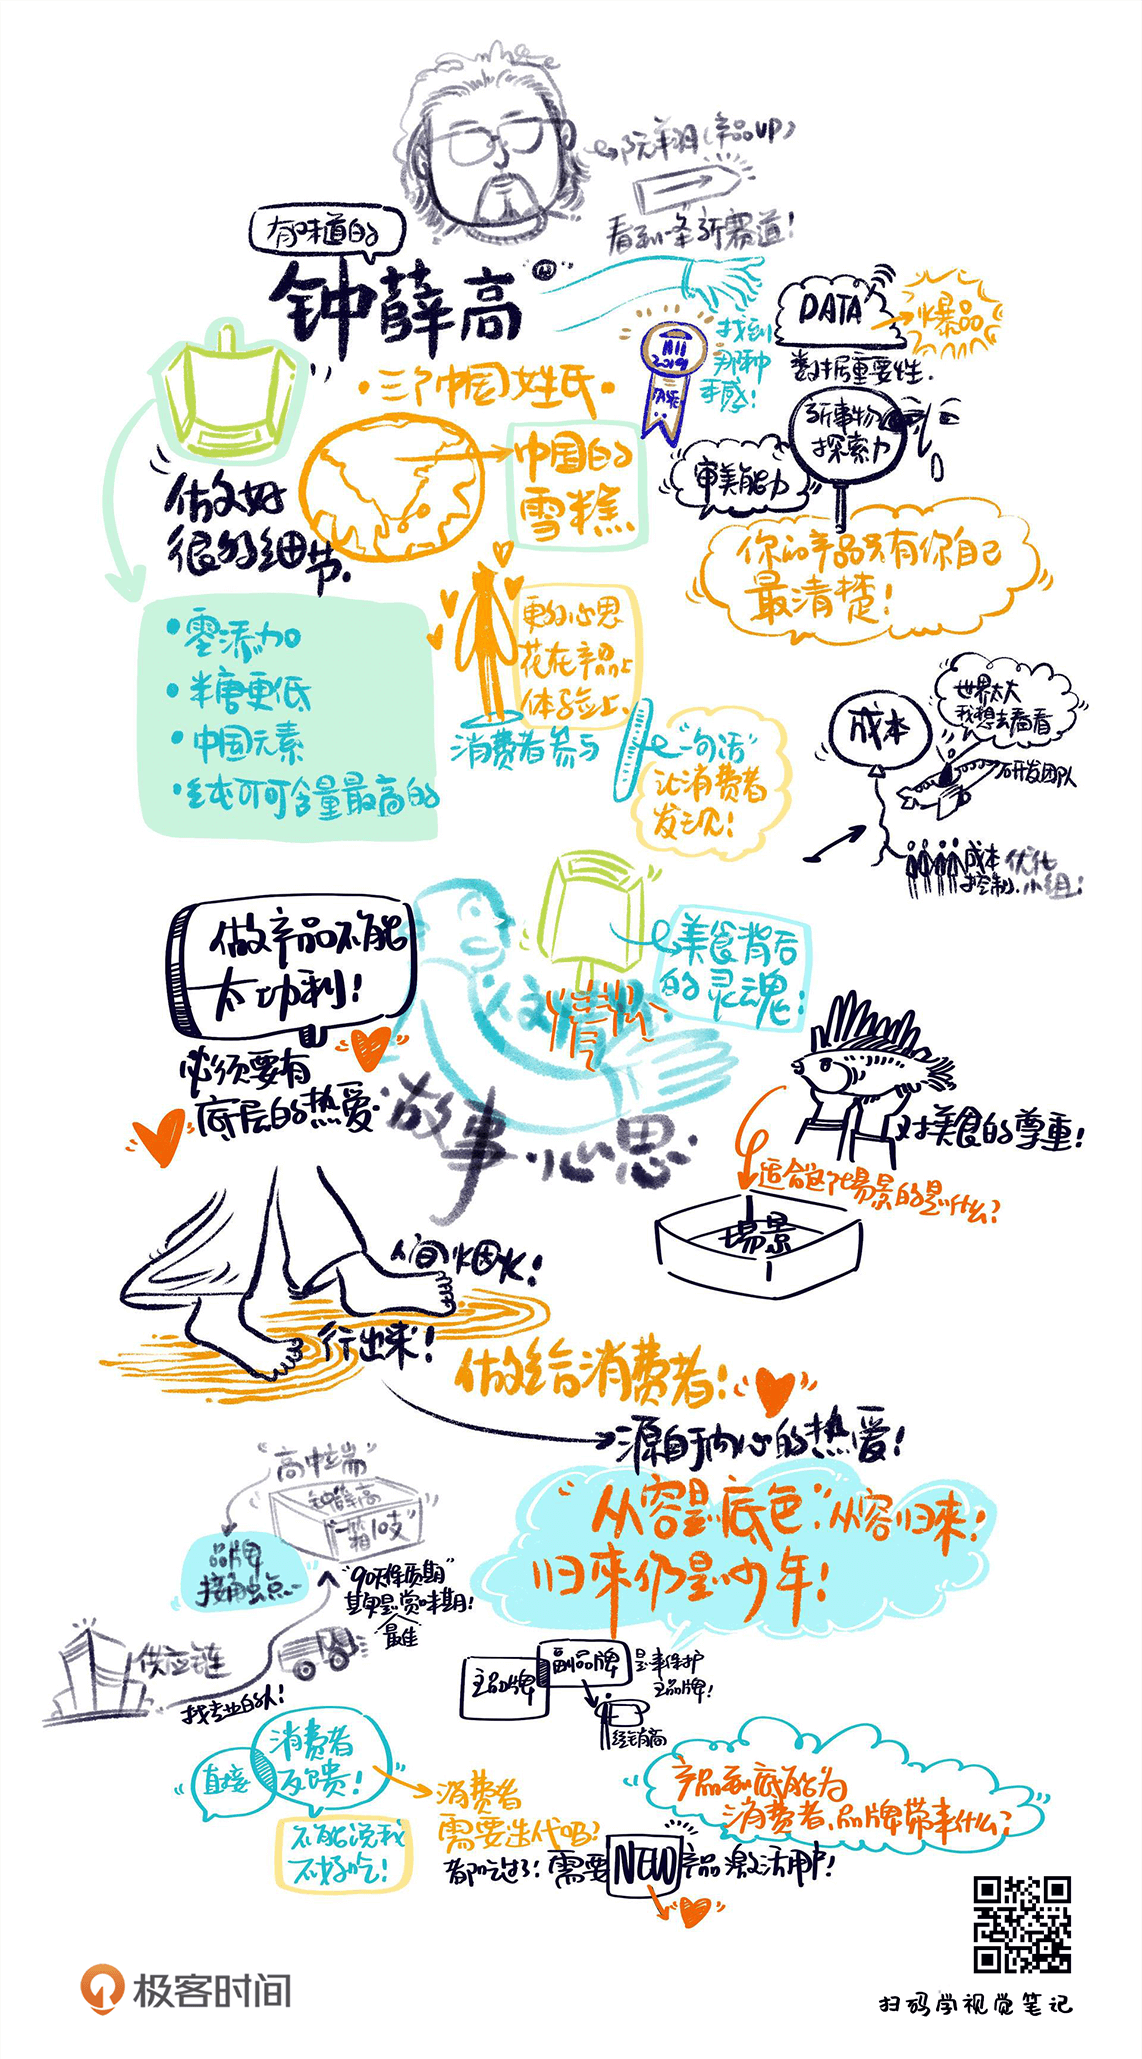 阮羊羽(产品VP)
看到一条新赛道!
有味道的
钟薛高
·三个中国姓氏·
找到
那种
手感!
2019
DATA
爆品
数据重要性.
新事物
探索力
审美能力
你的产品只有你自己
最清楚!
中国的
雪糕
做好
很多细节.
·零添加
·半糖更低
·中国元素
·纯可可含量最高的
更多心思
花在产品上
体验上、
消费者参与
“一句话”
让消费者
发现!
成本
世界太大
我想去看看
研发团队
成本优化
控制、小组!
做产品不能
太功利!
必须要有
底层的热爱.
美食背后
的灵魂:
人文情怀.
故事·心思
对美食的尊重!
适合这个场景的是什么?
场景
人间烟火!
行出来!
做给消费者!
源自于内心的热爱!
“高中端”
钟薛高
“一箱10支”
品牌
接触点
“90天保质期”
其更是赏味期!
最佳
供应链
找专业的人!
“从容是底色”:从容归来!
归来仍是少年!
主品牌
副品牌
是来保护
主品牌!
经销商
直接
消费者
反馈!
不能说我
不好吃!
消费者
需要迭代吗?
都吃过了!需要NEW产品激活用户!
产品到底能为
消费者、品牌带来什么?
极客时间
扫码学视觉笔记